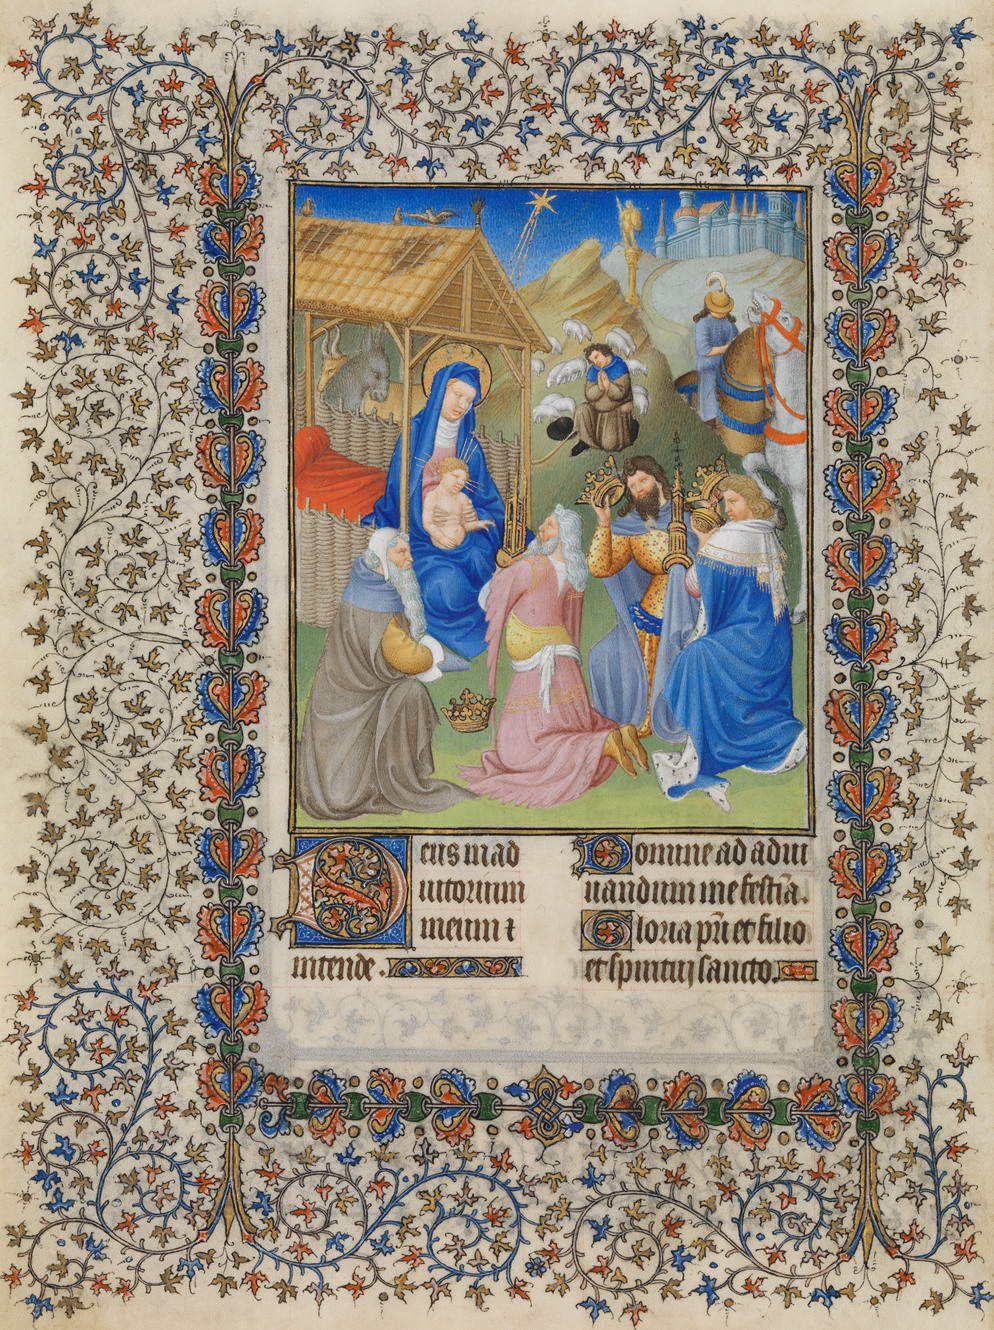 Deus in ad
iutorium
meum ⁊
intende.
Domine ad adiu
uandum me festīa.
Gloria pr̄i et filio
et spiritui sancto.